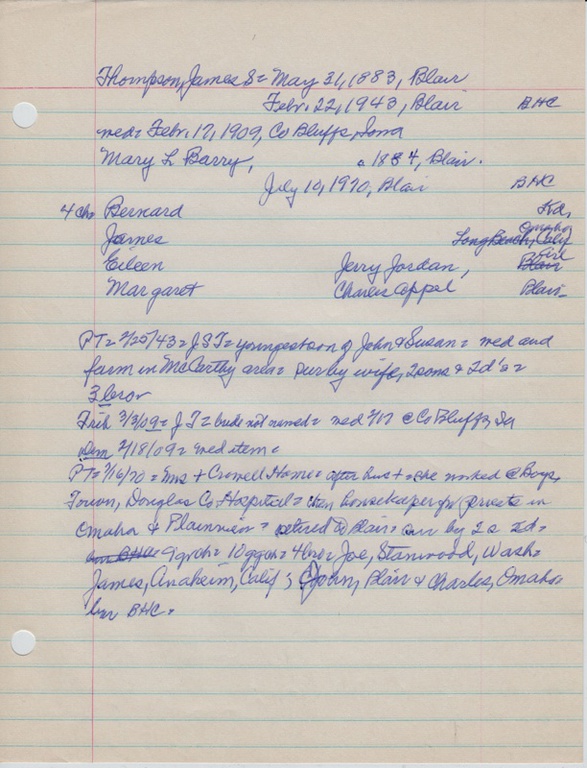 Thompson, James S = May 31, 1883, Blair
Febr. 22, 1943, Blair BHC
med = Febr. 17, 1909, Co Bluffs, Iowa
Mary L Barry, a 1884, Blair.
July 10, 1970, Blair BHC
4 chs Bernard
Omaha
James Long Beach, Calif
Eileen Jerry Jordan, Blair
Margaret Charles Appel Blair
PT = 2/25/43 = J S T = youngest son of John & Susan = med and
farm in McCarthy area = surby wife, 2 sons & 2 d's =
3 bros
Trib 3/3/09 = J T = bride not named = med 2/17 @ Co Bluffs, Ia
Dem 2/18/09 = med item =
PT = 7/16/70 = Ems + Crowell Home = after hus + = she worked @ Boys
Town, Douglas Co Hospital = then housekeeper for priests in
Omaha & Plainview = retired to Blair = sur by 2 s 2 d =
9 grch = 10 ggch = 4 bro = Joe, Stanwood, Wash =
James, Anaheim, Calif; John, Blair & Charles, Omaha
bur BHC.